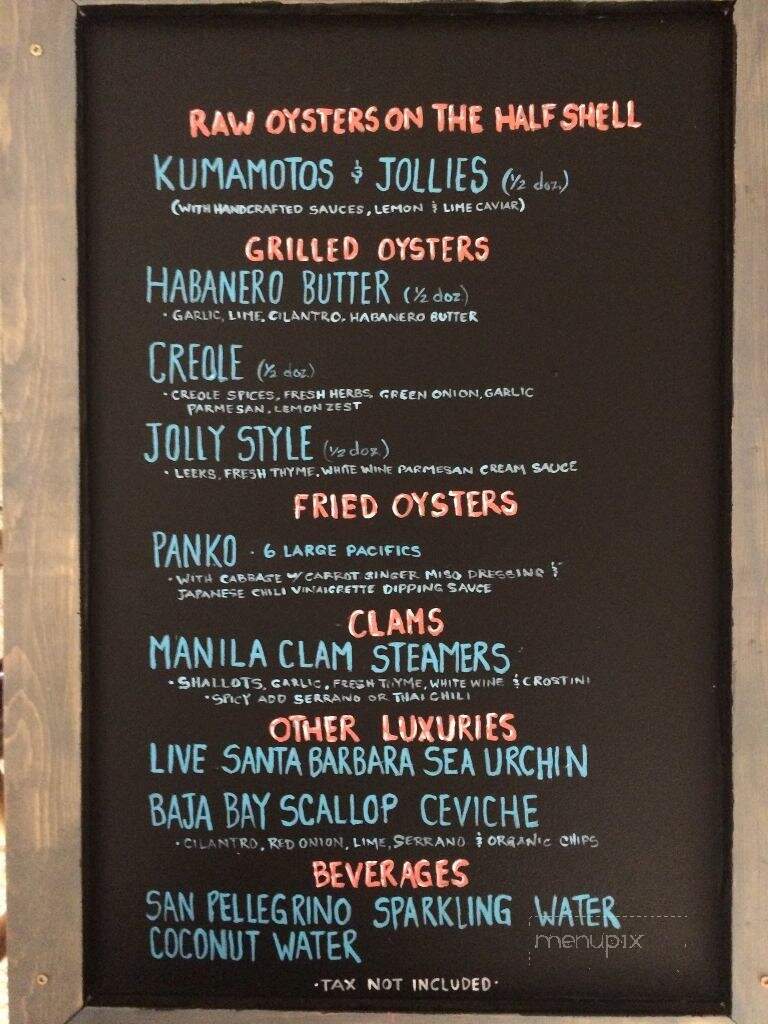 RAW OYSTERS ON THE HALF SHELL
KUMAMOTOS & JOLLIES (1/2 doz.)
(WITH HANDCRAFTED SAUCES, LEMON & LIME CAVIAR)
GRILLED OYSTERS
HABANERO BUTTER (1/2 doz.)
• GARLIC, LIME, CILANTRO, HABANERO BUTTER
CREOLE (1/2 doz.)
• CREOLE SPICES, FRESH HERBS, GREEN ONION, GARLIC
PARMESAN, LEMON ZEST
JOLLY STYLE (1/2 doz.)
• LEEKS, FRESH THYME, WHITE WINE PARMESAN CREAM SAUCE
FRIED OYSTERS
PANKO • 6 LARGE PACIFICS
• WITH CABBAGE W/ CARROT GINGER MISO DRESSING &
JAPANESE CHILI VINAIGRETTE DIPPING SAUCE
CLAMS
MANILA CLAM STEAMERS
• SHALLOTS, GARLIC, FRESH THYME, WHITE WINE & CROSTINI
• SPICY ADD SERRANO OR THAI CHILI
OTHER LUXURIES
LIVE SANTA BARBARA SEA URCHIN
BAJA BAY SCALLOP CEVICHE
• CILANTRO, RED ONION, LIME, SERRANO & ORGANIC CHIPS
BEVERAGES
SAN PELLEGRINO SPARKLING WATER
COCONUT WATER
menupix
• TAX NOT INCLUDED •